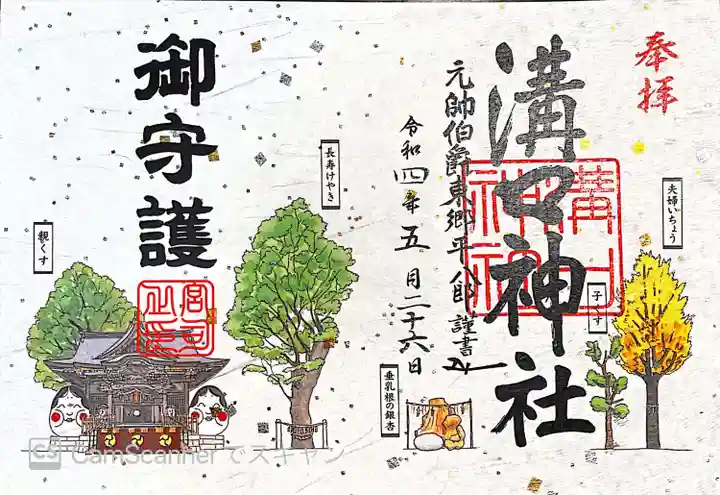 奉拝
溝口神社
溝口神社
元帥伯爵東郷平八郎謹書
令和四年五月二十六日
夫婦いちょう
子くす
垂乳根の銀杏
長寿けやき
御守護
宮司之印
親くす
CS CamScanner でスキャン